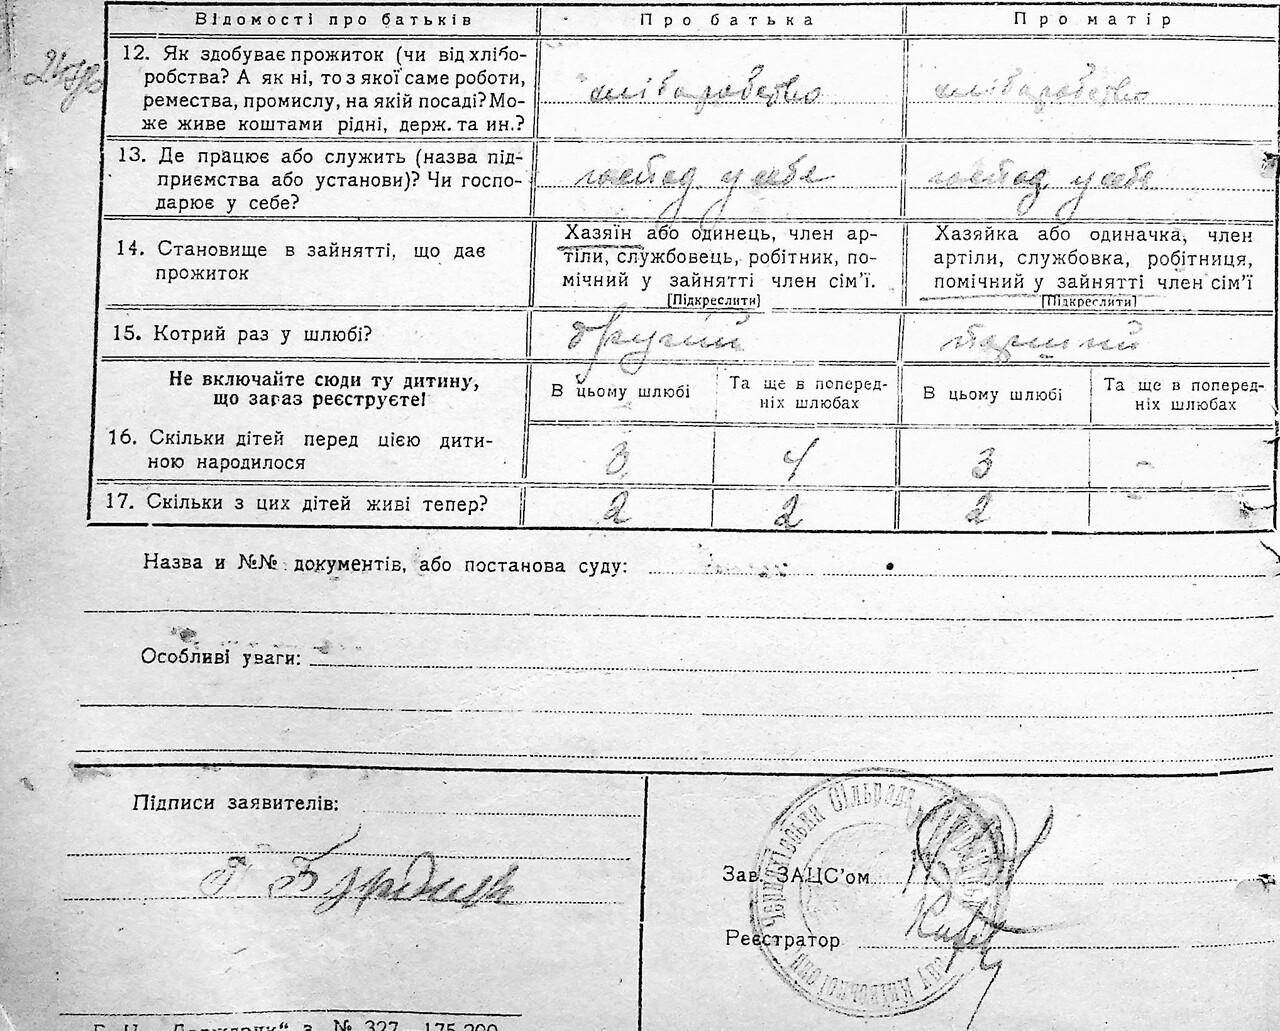 Відомості про батьків
Про батька
Про матір
12. Як здобуває прожиток (чи від хлібо-
робства? А як ні, то з якої саме роботи,
ремества, промислу, на якій посаді? Мо-
же живе коштами рідні, держ. та ин.?
хліборобство
хліборобство
13. Де працює або служить (назва під-
приємства або установи)? Чи госпо-
дарює у себе?
господ у себе
господ у себе
14. Становище в зайнятті, що дає
прожиток
Хазяїн або одинець, член ар-
тіли, службовець, робітник, по-
мічний у зайнятті член сім'ї.
[Підкреслити]
Хазяйка або одиначка, член
артіли, службовка, робітниця,
помічний у зайнятті член сім'ї
[Підкреслити]
15. Котрий раз у шлюбі?
другий
перший
Не включайте сюди ту дитину,
що зараз реєструєте!
В цьому шлюбі
Та ще в поперед-
ніх шлюбах
В цьому шлюбі
Та ще в поперед-
ніх шлюбах
16. Скільки дітей перед цією дити-
ною народилося
3
4
3
-
17. Скільки з цих дітей живі тепер?
2
2
2
Назва и №№ документів, або постанова суду:
Особливі уваги:
Підписи заявителів:
Зав. ЗАЦС'ом
Реєстратор
Сільрада
№ 327 175.200